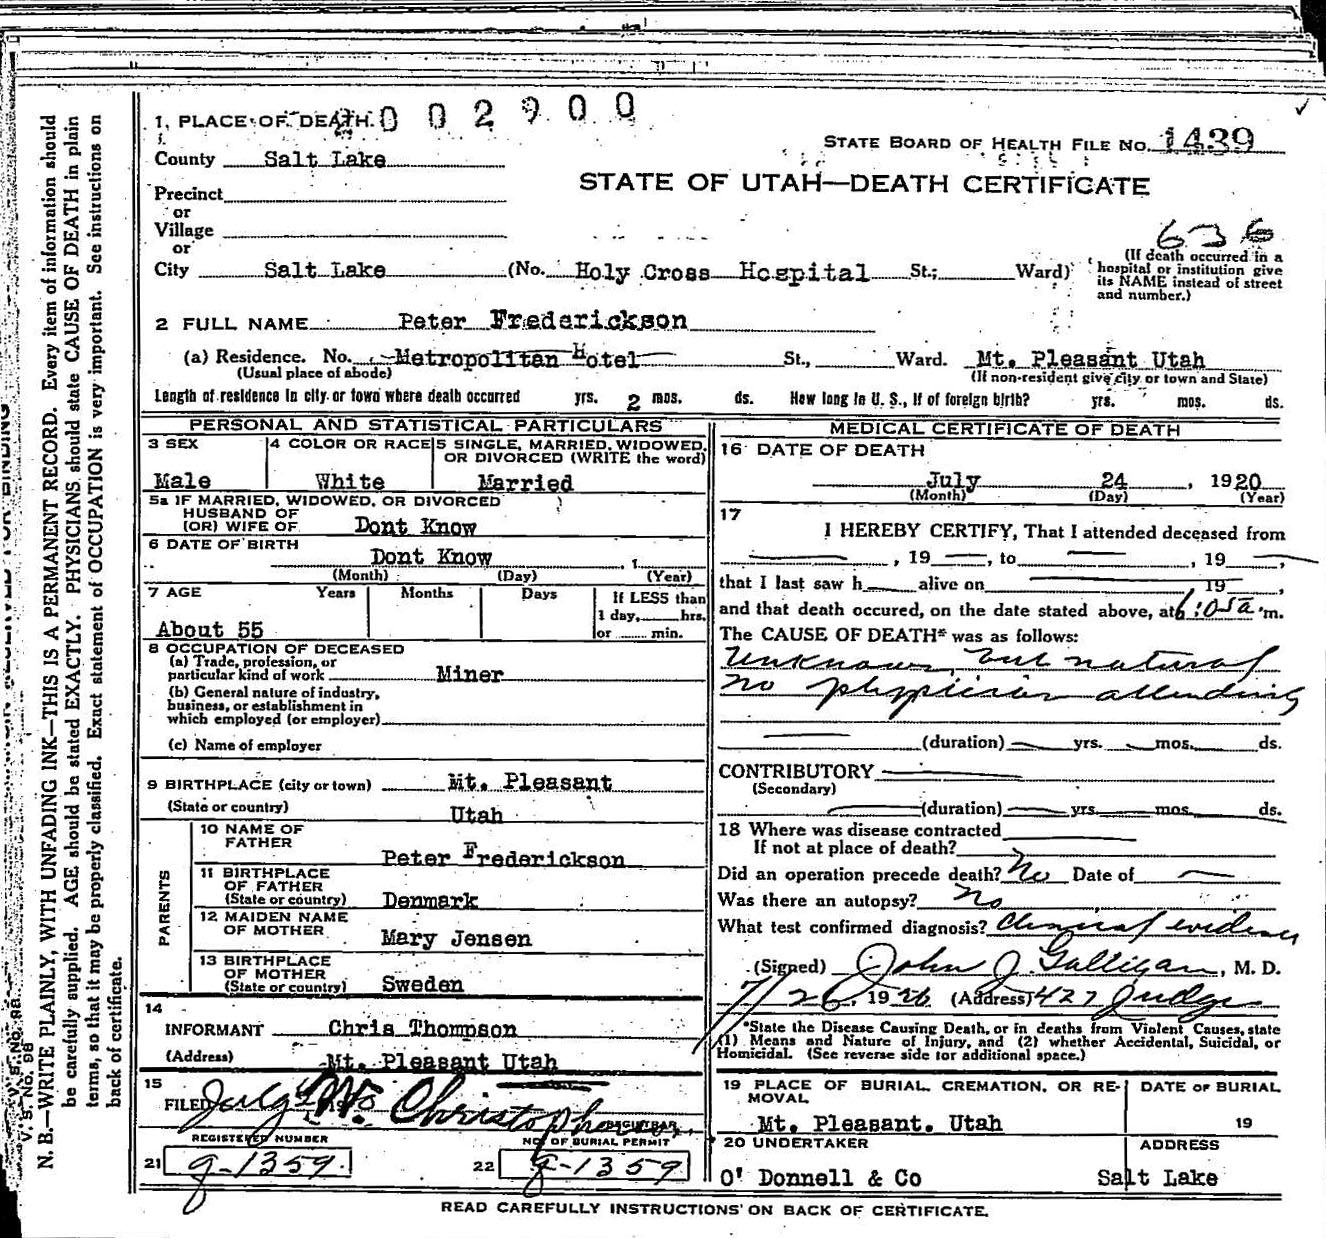 1. PLACE OF DEATH
002900
County Salt Lake
STATE BOARD OF HEALTH FILE No. 1439
STATE OF UTAH—DEATH CERTIFICATE
Precinct
or
Village
or
City Salt Lake (No. Holy Cross Hospital St.; Ward)
636
(If death occurred in a
hospital or institution give
its NAME instead of street
and number.)
2 FULL NAME Peter Frederickson
(a) Residence. No. Metropolitan Hotel St., Ward. Mt. Pleasant Utah
(Usual place of abode) (If non-resident give city or town and State)
Length of residence in city or town where death occurred yrs. 2 mos. ds. How long in U. S., if of foreign birth? yrs. mos. ds.
PERSONAL AND STATISTICAL PARTICULARS
3 SEX
Male
4 COLOR OR RACE
White
5 SINGLE, MARRIED, WIDOWED,
OR DIVORCED (WRITE the word)
Married
5a IF MARRIED, WIDOWED, OR DIVORCED
HUSBAND OF
(OR) WIFE OF Dont Know
6 DATE OF BIRTH
Dont Know , 1
(Month) (Day) (Year)
7 AGE Years Months Days
About 55
If LESS than
1 day, hrs.
or min.
8 OCCUPATION OF DECEASED
(a) Trade, profession, or
particular kind of work Miner
(b) General nature of industry,
business, or establishment in
which employed (or employer)
(c) Name of employer
9 BIRTHPLACE (city or town) Mt. Pleasant
(State or country) Utah
PARENTS
10 NAME OF
FATHER
Peter Frederickson
11 BIRTHPLACE
OF FATHER
(State or country) Denmark
12 MAIDEN NAME
OF MOTHER Mary Jensen
13 BIRTHPLACE
OF MOTHER
(State or country) Sweden
14
INFORMANT Chris Thompson
(Address) Mt. Pleasant Utah
15
FILED July
REGISTRAR
REGISTERED NUMBER
21 g-1359
NO. OF BURIAL PERMIT
22 g-1359
MEDICAL CERTIFICATE OF DEATH
16 DATE OF DEATH
July 24 , 1920
(Month) (Day) (Year)
17
I HEREBY CERTIFY, That I attended deceased from
, 19 , to , 19 ,
that I last saw h alive on 19 ,
and that death occured, on the date stated above, at 6:05a m.
The CAUSE OF DEATH* was as follows:
Unknown, but natural
no physician attending
(duration) yrs. mos. ds.
CONTRIBUTORY
(Secondary)
(duration) yrs. mos. ds.
18 Where was disease contracted
If not at place of death?
Did an operation precede death? No Date of
Was there an autopsy? No
What test confirmed diagnosis? Clinical evidence
(Signed) John J Galligan, M. D.
7/26, 19 (Address) 427 Judge
*State the Disease Causing Death, or in deaths from Violent Causes, state
(1) Means and Nature of Injury, and (2) whether Accidental, Suicidal, or
Homicidal. (See reverse side for additional space.)
19 PLACE OF BURIAL, CREMATION, OR RE-
MOVAL
Mt. Pleasant. Utah
DATE OF BURIAL
19
20 UNDERTAKER
O' Donnell & Co
ADDRESS
Salt Lake
READ CAREFULLY INSTRUCTIONS ON BACK OF CERTIFICATE.
N. B.—WRITE PLAINLY, WITH UNFADING INK—THIS IS A PERMANENT RECORD. Every item of information should
be carefully supplied. AGE should be stated EXACTLY. PHYSICIANS should state CAUSE OF DEATH in plain
terms, so that it may be properly classified. Exact statement of OCCUPATION is very important. See instructions on
back of certificate.
V. S. No. 98